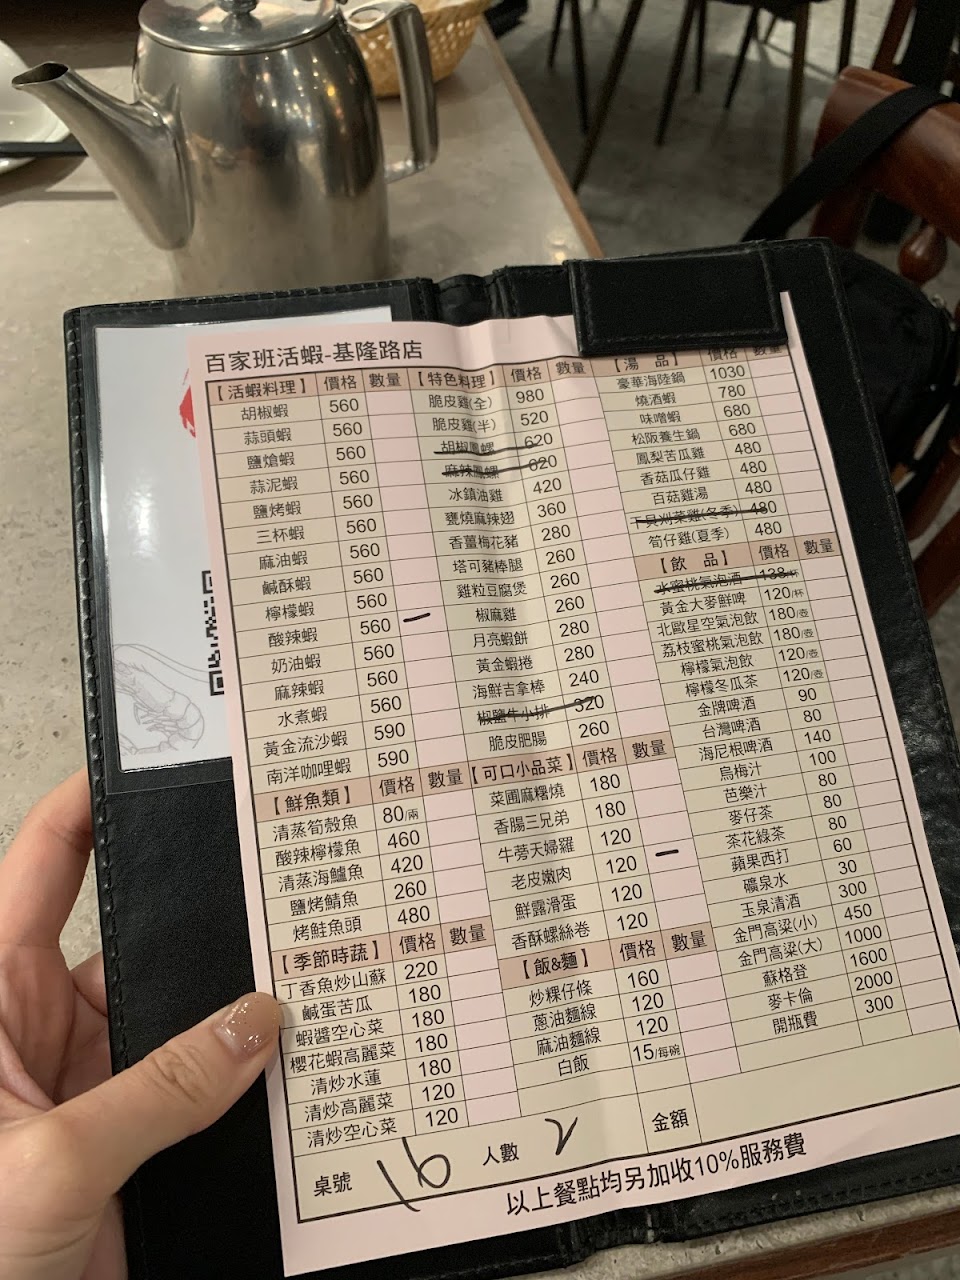 百家班活蝦-基隆路店
【活蝦料理】 價格 數量
胡椒蝦 560
蒜頭蝦 560
鹽焗蝦 560
蒜泥蝦 560
鹽烤蝦 560
三杯蝦 560
麻油蝦 560
鹹酥蝦 560
檸檬蝦 560
酸辣蝦 560 一
奶油蝦 560
麻辣蝦 560
水煮蝦 560
黃金流沙蝦 590
南洋咖哩蝦 590
【鮮魚類】 價格 數量
清蒸筍殼魚 80/兩
酸辣檸檬魚 460
清蒸海鱸魚 420
鹽烤鯖魚 260
烤鮭魚頭 480
【季節時蔬】 價格 數量
丁香魚炒山蘇 220
鹹蛋苦瓜 180
蝦醬空心菜 180
櫻花蝦高麗菜 180
清炒水蓮 180
清炒高麗菜 120
清炒空心菜 120
【特色料理】 價格 數量
脆皮雞(全) 980
脆皮雞(半) 520
胡椒鳳螺 620
麻辣鳳螺 620
冰鎮油雞 420
甕燒麻辣翅 360
香薑梅花豬 280
塔可豬棒腿 260
雞粒豆腐煲 260
椒麻雞 260
月亮蝦餅 280
黃金蝦捲 280
海鮮吉拿棒 240
椒鹽牛小排 320
脆皮肥腸 260
【可口小品菜】 價格 數量
菜圃麻糬燒 180
香腸三兄弟 180
牛蒡天婦羅 120
老皮嫩肉 120 一
鮮露滑蛋 120
香酥螺絲卷 120
【飯&麵】 價格 數量
炒粿仔條 160
蔥油麵線 120
麻油麵線 120
白飯 15/每碗
【湯 品】 價格 數量
豪華海陸鍋 1030
燒酒蝦 780
味噌蝦 680
松阪養生鍋 680
鳳梨苦瓜雞 480
香菇瓜仔雞 480
百菇雞湯 480
干貝刈菜雞(冬季) 480
筍仔雞(夏季) 480
【飲 品】 價格 數量
水蜜桃氣泡酒 138/杯
黃金大麥鮮啤 120/杯
北歐星空氣泡飲 180/壺
荔枝蜜桃氣泡飲 180/壺
檸檬氣泡飲 120/壺
檸檬冬瓜茶 120/壺
金牌啤酒 90
台灣啤酒 80
海尼根啤酒 140
烏梅汁 100
芭樂汁 80
麥仔茶 80
茶花綠茶 80
蘋果西打 60
礦泉水 30
玉泉清酒 300
金門高粱(小) 450
金門高粱(大) 1000
蘇格登 1600
麥卡倫 2000
開瓶費 300
桌號 人數 2 金額
以上餐點均另加收10%服務費